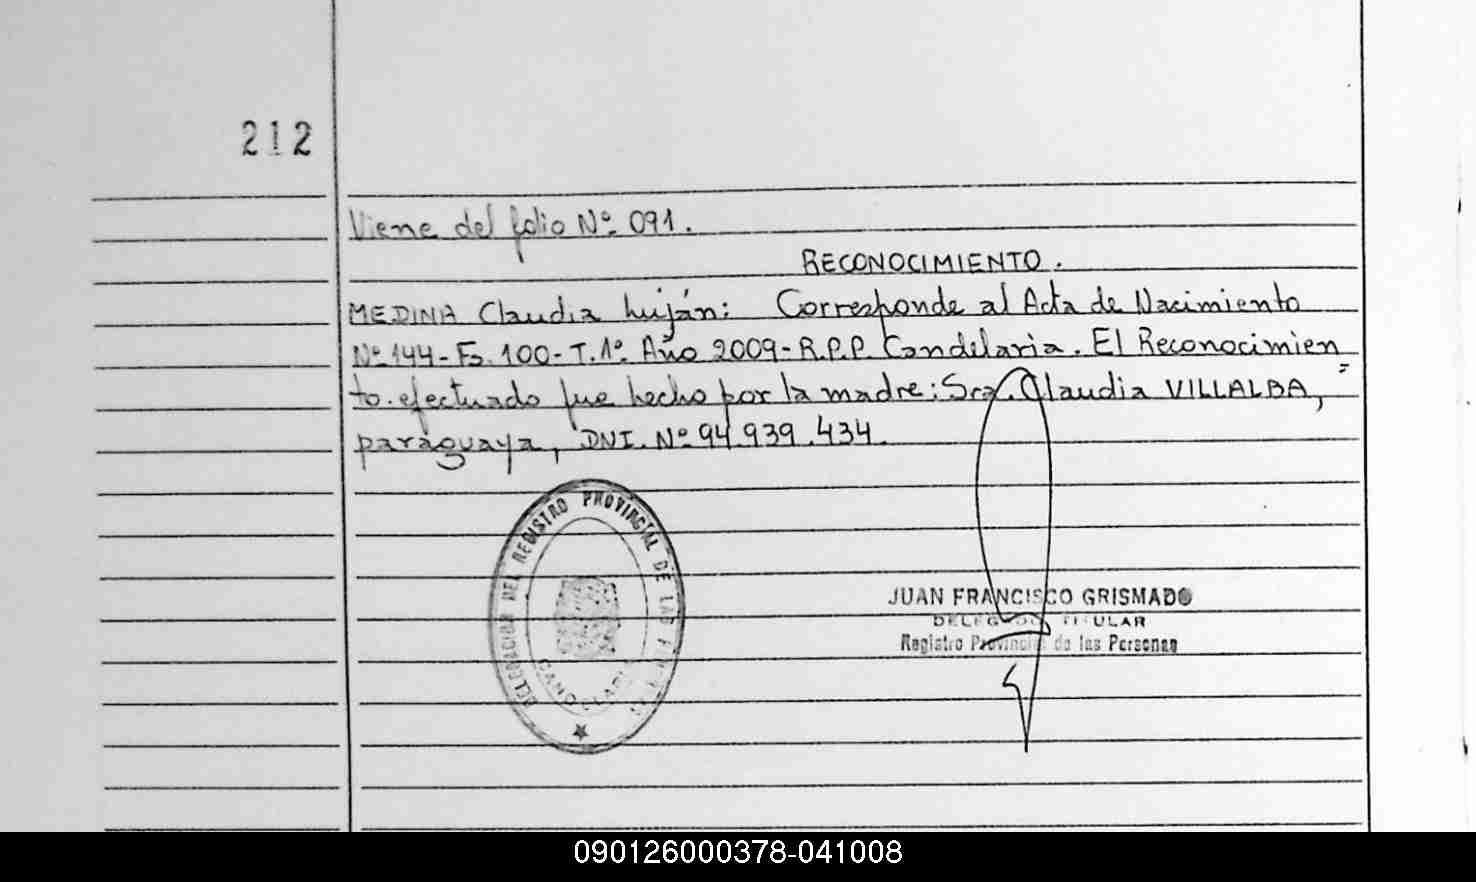 212
Viene del folio Nº 091.
RECONOCIMIENTO.
MEDINA Claudia Luján: Corresponde al Acta de Nacimiento
Nº 144-Fº. 100-T.1º. Año 2009-R.P.P. Candelaria. El Reconocimien=
to efectuado fue hecho por la madre: Sra. Claudia VILLALBA,
paraguaya, DNI. Nº 94.939.434.
DELEGACION DEL REGISTRO PROVINCIAL DE LAS
CANDELARIA
JUAN FRANCISCO GRISMADO
DELEGADO TITULAR
Registro Provincial de las Personas
090126000378-041008